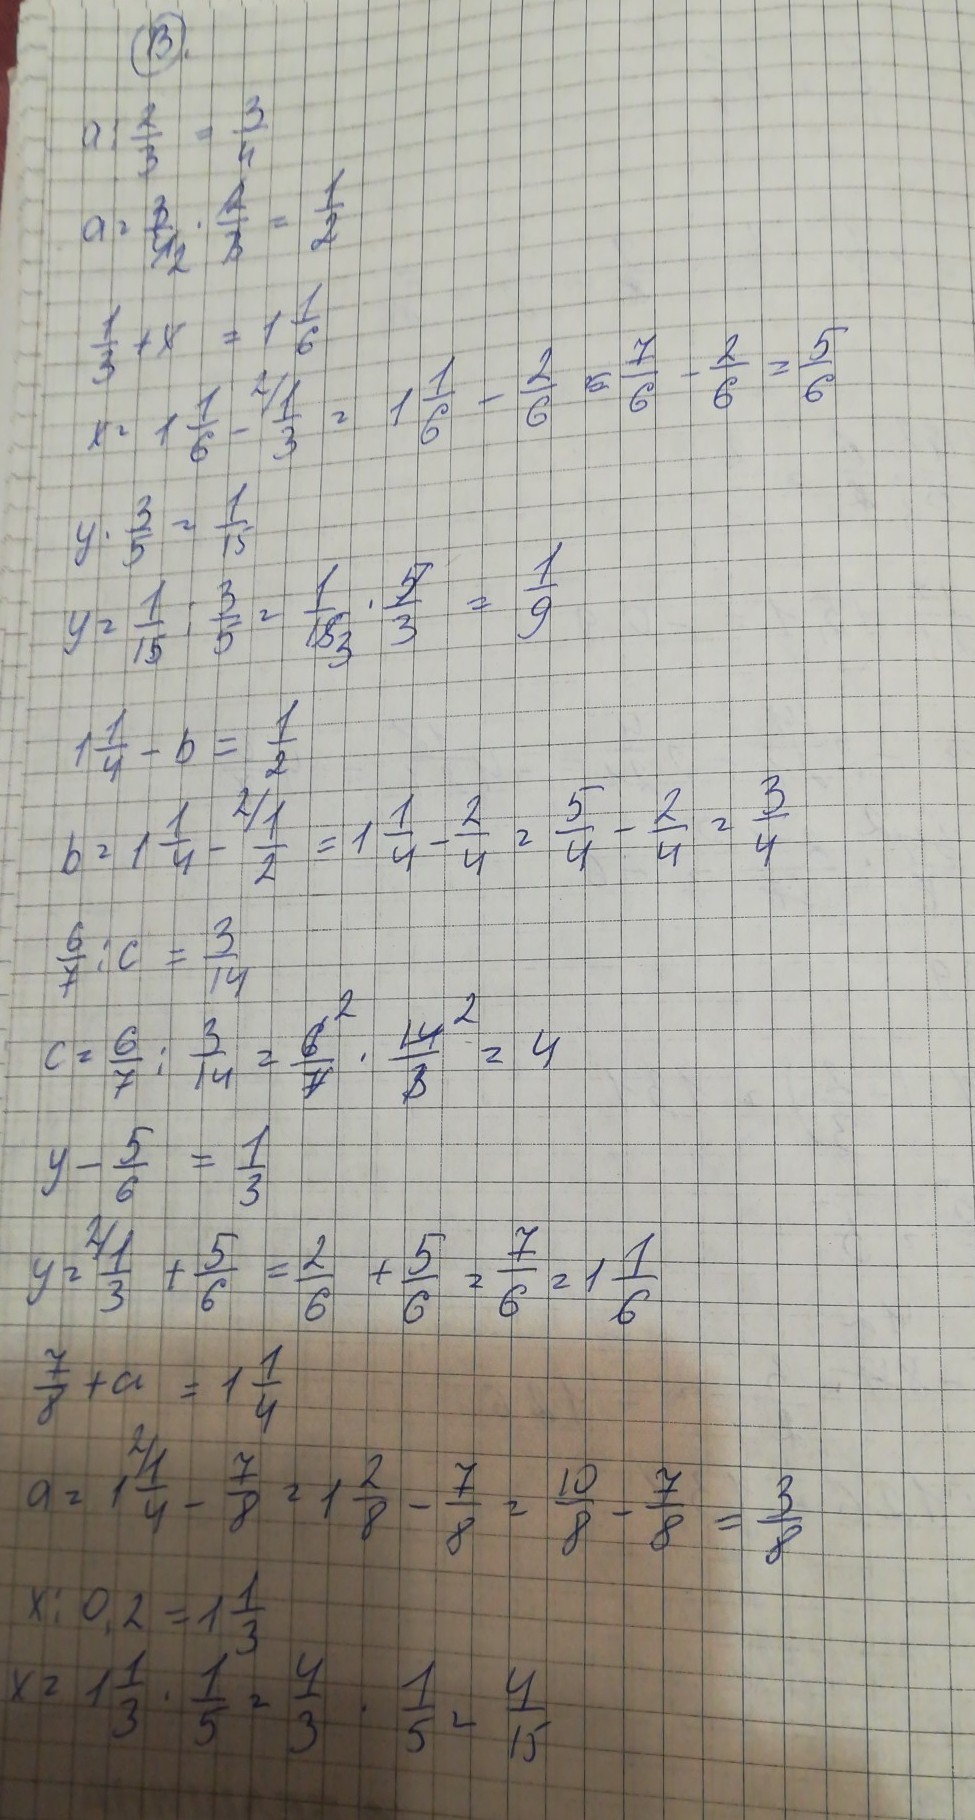 3.
a : 2/3 = 3/4
a = 3/4 2 · 2/3 = 1/2
1/3 + x = 1 1/6
x = 1 1/6 - 2/ 1/3 = 1 1/6 - 2/6 = 7/6 - 2/6 = 5/6
y · 3/5 = 1/15
y = 1/15 : 3/5 = 1/15 3 · 5/3 = 1/9
1 1/4 - b = 1/2
b = 1 1/4 - 2/ 1/2 = 1 1/4 - 2/4 = 5/4 - 2/4 = 3/4
6/7 : c = 3/14
c = 6/7 : 3/14 = 6/7 2 · 14/3 2 = 4
y - 5/6 = 1/3
y = 2/ 1/3 + 5/6 = 2/6 + 5/6 = 7/6 = 1 1/6
7/8 + a = 1 1/4
a = 1 2/ 1/4 - 7/8 = 1 2/8 - 7/8 = 10/8 - 7/8 = 3/8
x : 0,2 = 1 1/3
x = 1 1/3 · 1/5 = 4/3 · 1/5 = 4/15